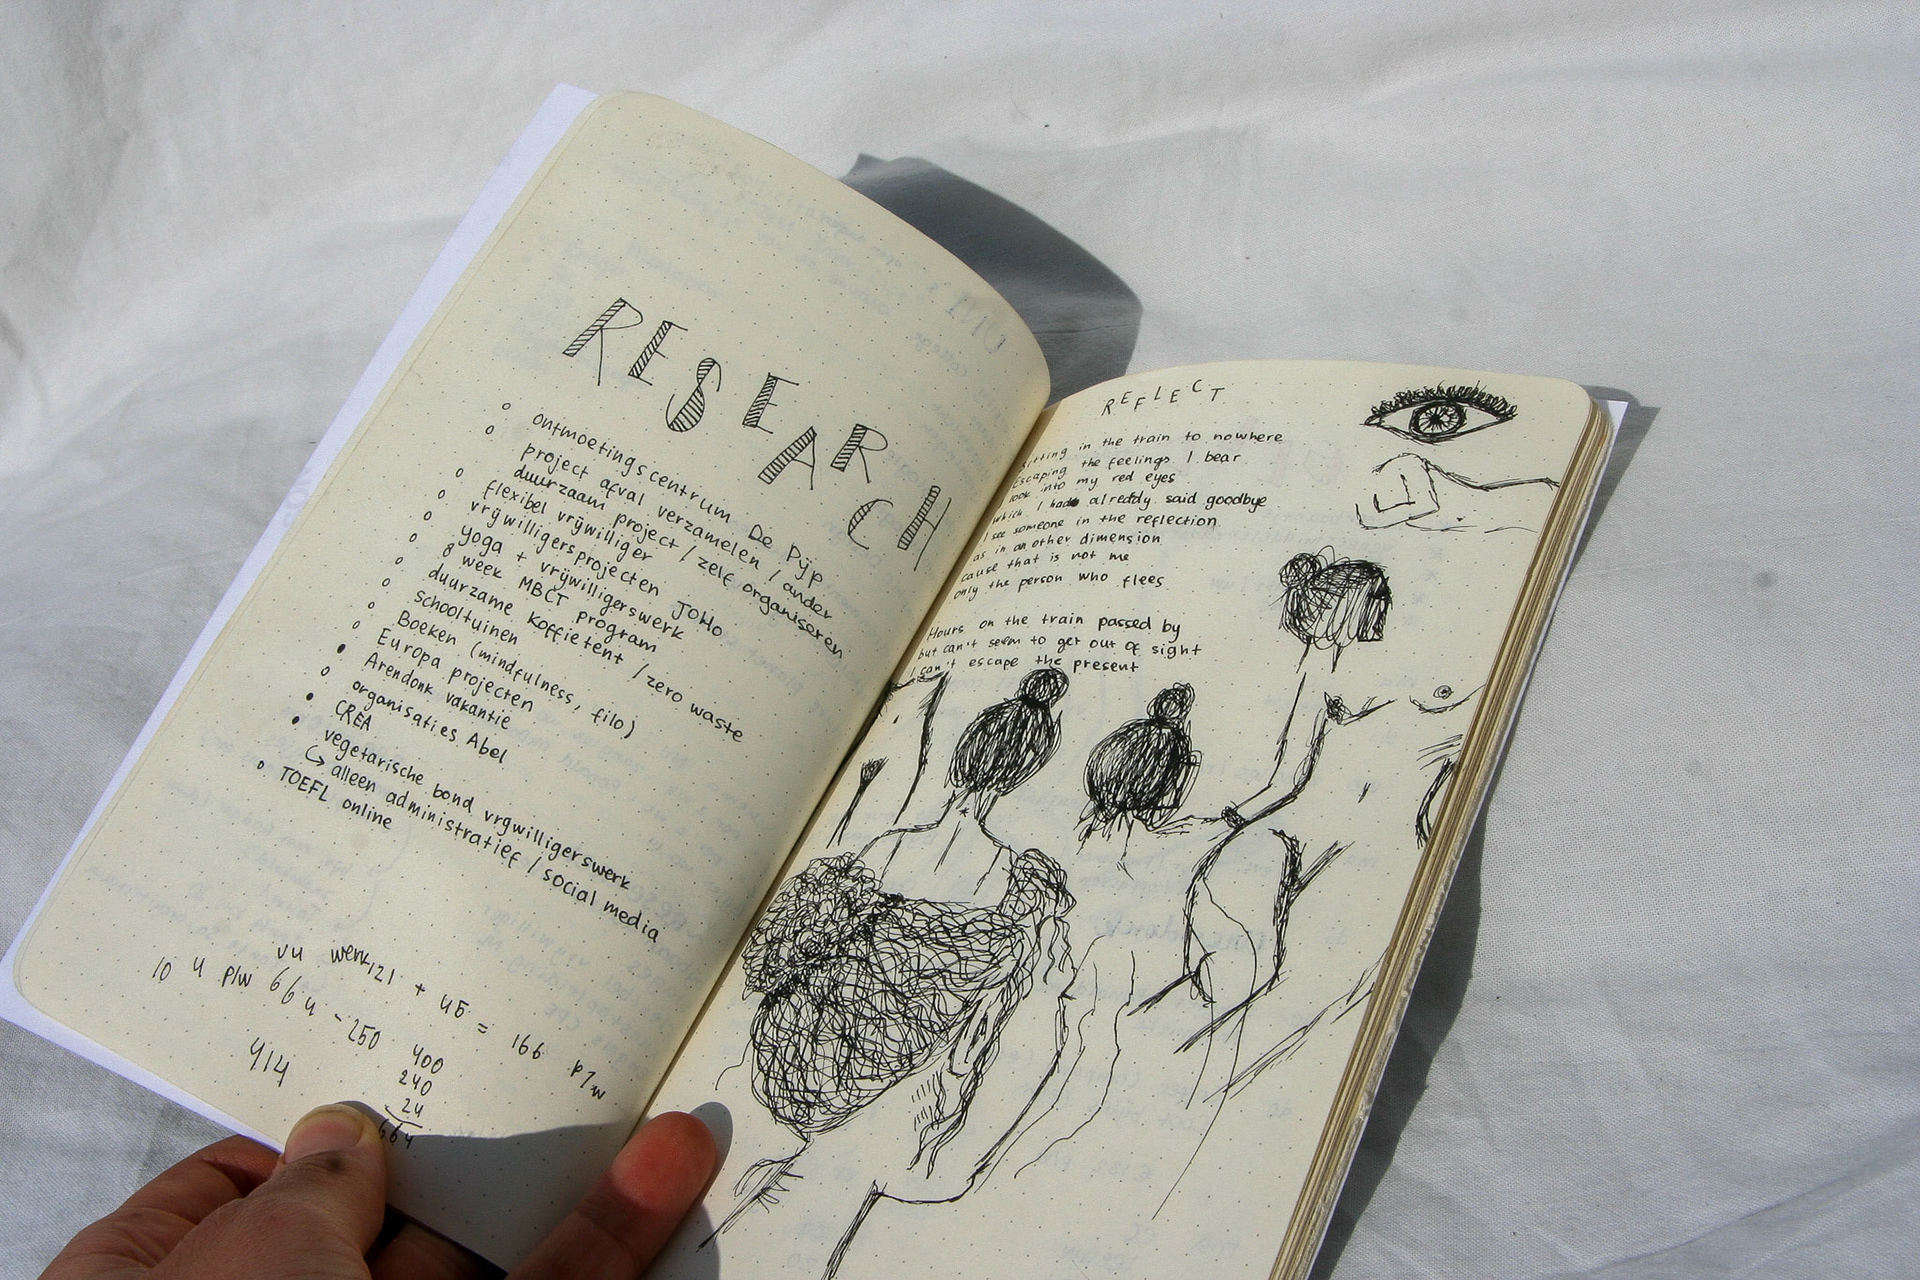 RESEARCH
ontmoetingscentrum De Pijp
project afval verzamelen / ander
duurzaam project / zelf organiseren
flexibel vrijwilliger
vrijwilligersprojecten JoHo
yoga + vrijwilligerswerk
8 week MBCT program
duurzame koffietent / zero waste
schooltuinen
Boeken (mindfulness, filo)
Europa projecten
Arendonk vakantie
organisaties Abel
CREA
vegetarische bond vrijwilligerswerk
↳ alleen administratief / social media
TOEFL online
vu werk 121 + 45 = 166 p/w
10 u p/w 66 u - 250
414
400
240
24
664
REFLECT
sitting in the train to nowhere
Escaping the feelings I bear
look into my red eyes
which I had already said goodbye
I see someone in the reflection
as in an other dimension
cause that is not me
only the person who flees
Hours on the train passed by
but can't seem to get out of sight
I can't escape the present